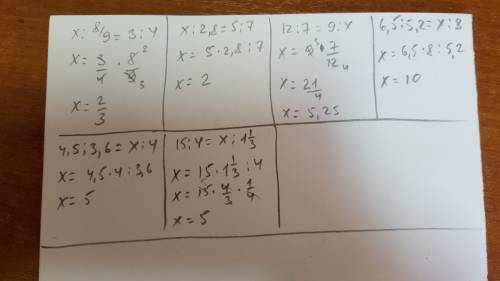 x : 8/9 = 3 : 4
x = 3/4 · 8²/9₃
x = 2/3
x : 2,8 = 5 : 7
x = 5 · 2,8 : 7
x = 2
12 : 7 = 9 : x
x = 9³ · 7/12₄
x = 21/4
x = 5,25
6,5 : 5,2 = x : 8
x = 6,5 · 8 : 5,2
x = 10
4,5 : 3,6 = x : 4
x = 4,5 · 4 : 3,6
x = 5
15 : 4 = x : 1 1/3
x = 15 · 1 1/3 : 4
x = 15 · 4/3 · 1/4
x = 5